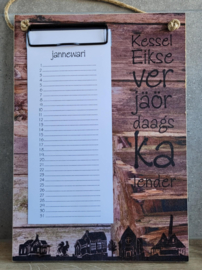 jannewari
1
2
3
4
5
6
7
8
9
10
11
12
13
14
15
16
17
18
19
20
21
22
23
24
25
26
27
28
29
30
31
Kessel
Eikse
ver
jäör
daags
ka
lender